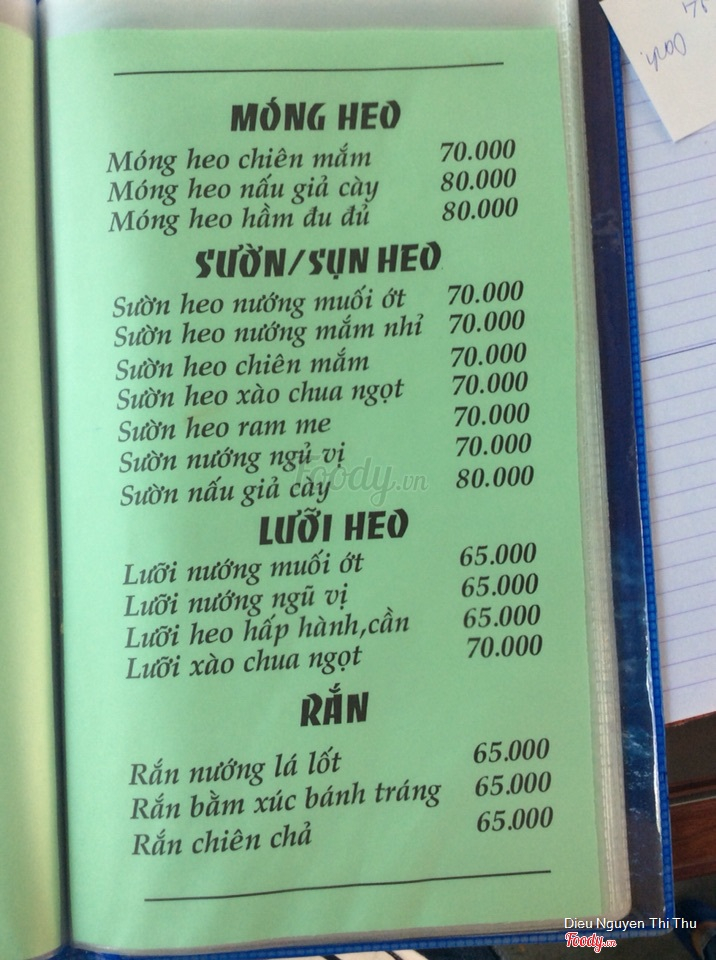 MÓNG HEO
Móng heo chiên mắm 70.000
Móng heo nấu giả cày 80.000
Móng heo hầm đu đủ 80.000
SƯỜN/SỤN HEO
Sườn heo nướng muối ớt 70.000
Sườn heo nướng mắm nhỉ 70.000
Sườn heo chiên mắm 70.000
Sườn heo xào chua ngọt 70.000
Sườn heo ram me 70.000
Sườn nướng ngủ vị 70.000
Sườn nấu giả cày 80.000
Foody.vn
LƯỠI HEO
Lưỡi nướng muối ớt 65.000
Lưỡi nướng ngũ vị 65.000
Lưỡi heo hấp hành,cần 65.000
Lưỡi xào chua ngọt 70.000
RẮN
Rắn nướng lá lốt 65.000
Rắn bằm xúc bánh tráng 65.000
Rắn chiên chả 65.000
Dieu Nguyen Thi Thu
Foody.vn